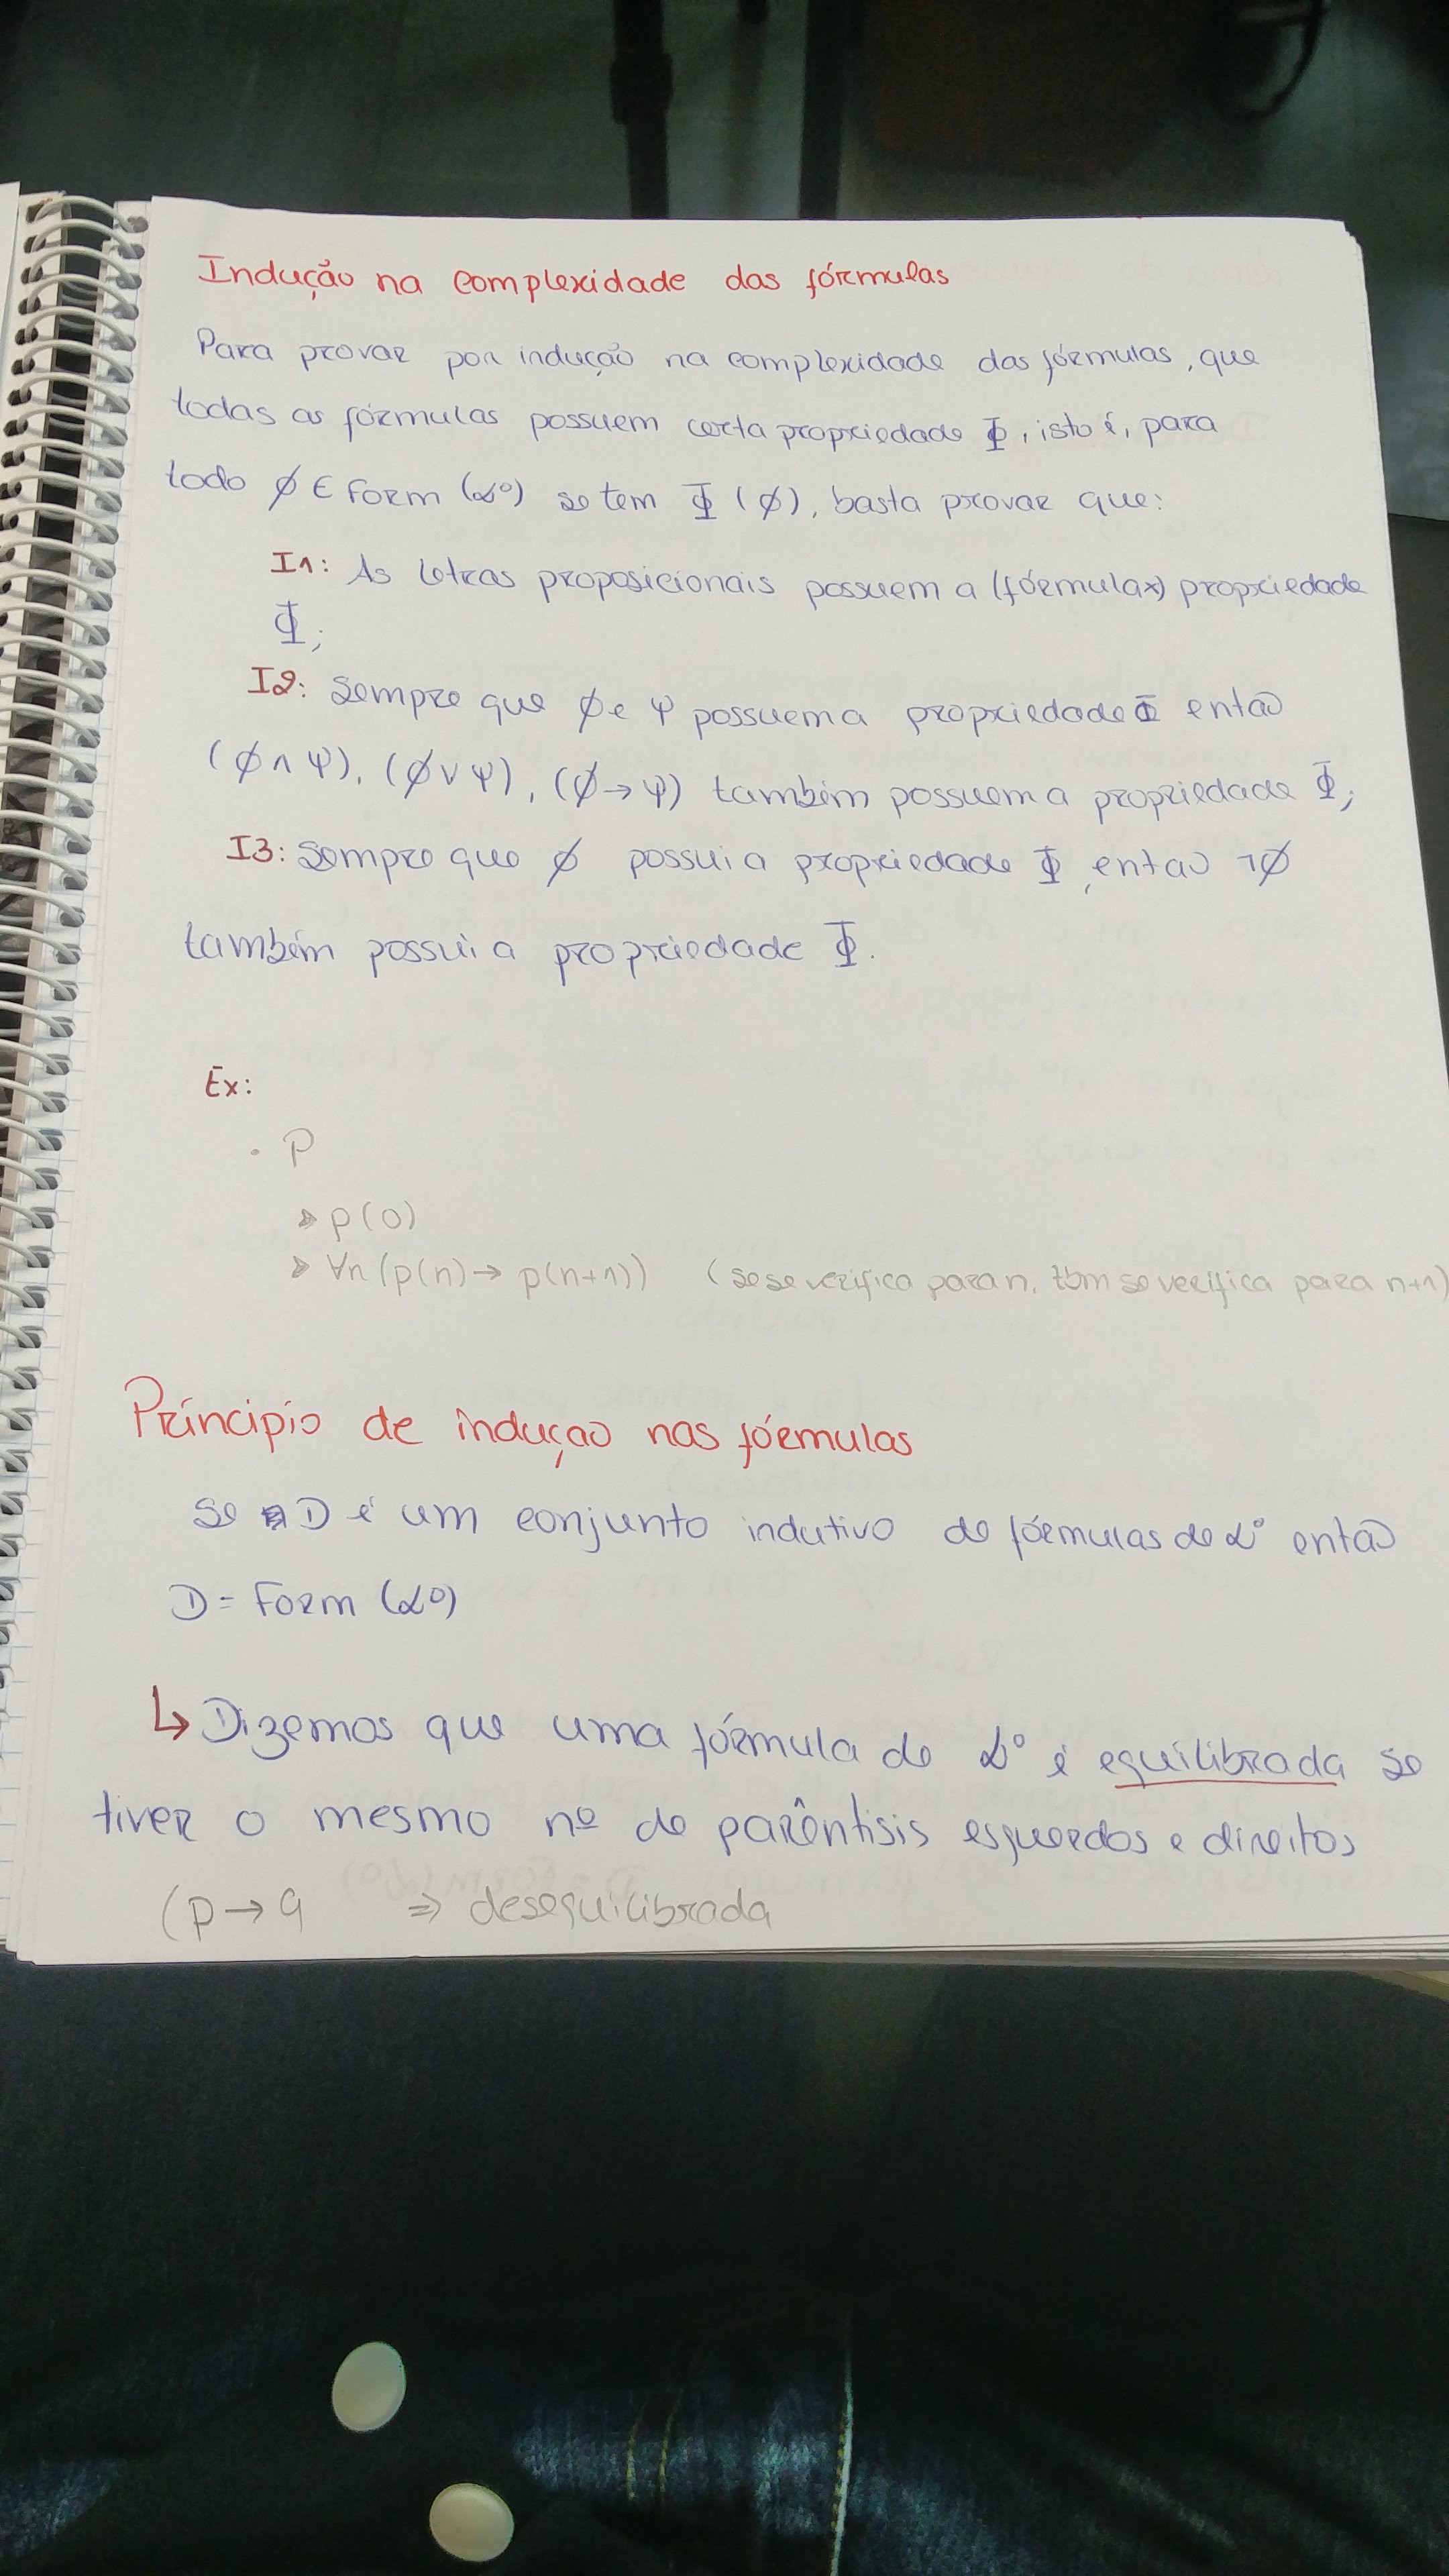 Indução na complexidade das fórmulas
Para provar por indução na complexidade das fórmulas, que
todas as fórmulas possuem certa propriedade Φ, isto é, para
todo ϕ ∈ Form (L⁰) se tem Φ (ϕ), basta provar que:
I1: As letras proposicionais possuem a (fórmula x) propriedade
Φ;
I2: Sempre que ϕ e ψ possuem a propriedade Φ então
(ϕ ∧ ψ), (ϕ ∨ ψ), (ϕ → ψ) também possuem a propriedade Φ;
I3: Sempre que ϕ possui a propriedade Φ, entao ¬ϕ
também possui a propriedade Φ.
Ex:
. P
> p(0)
> ∀n (p(n) → p(n+1)) (se se verifica para n, tbm se verifica para n+1)
Príncipio de induçao nas fórmulas
Se D é um conjunto indutivo de fórmulas de L⁰ então
D = Form (L⁰)
↳ Dizemos que uma fórmula de L⁰ é equilibrada se
tiver o mesmo nº de parêntisis esquerdos e direitos
(p → q ⇒ desequilibrada